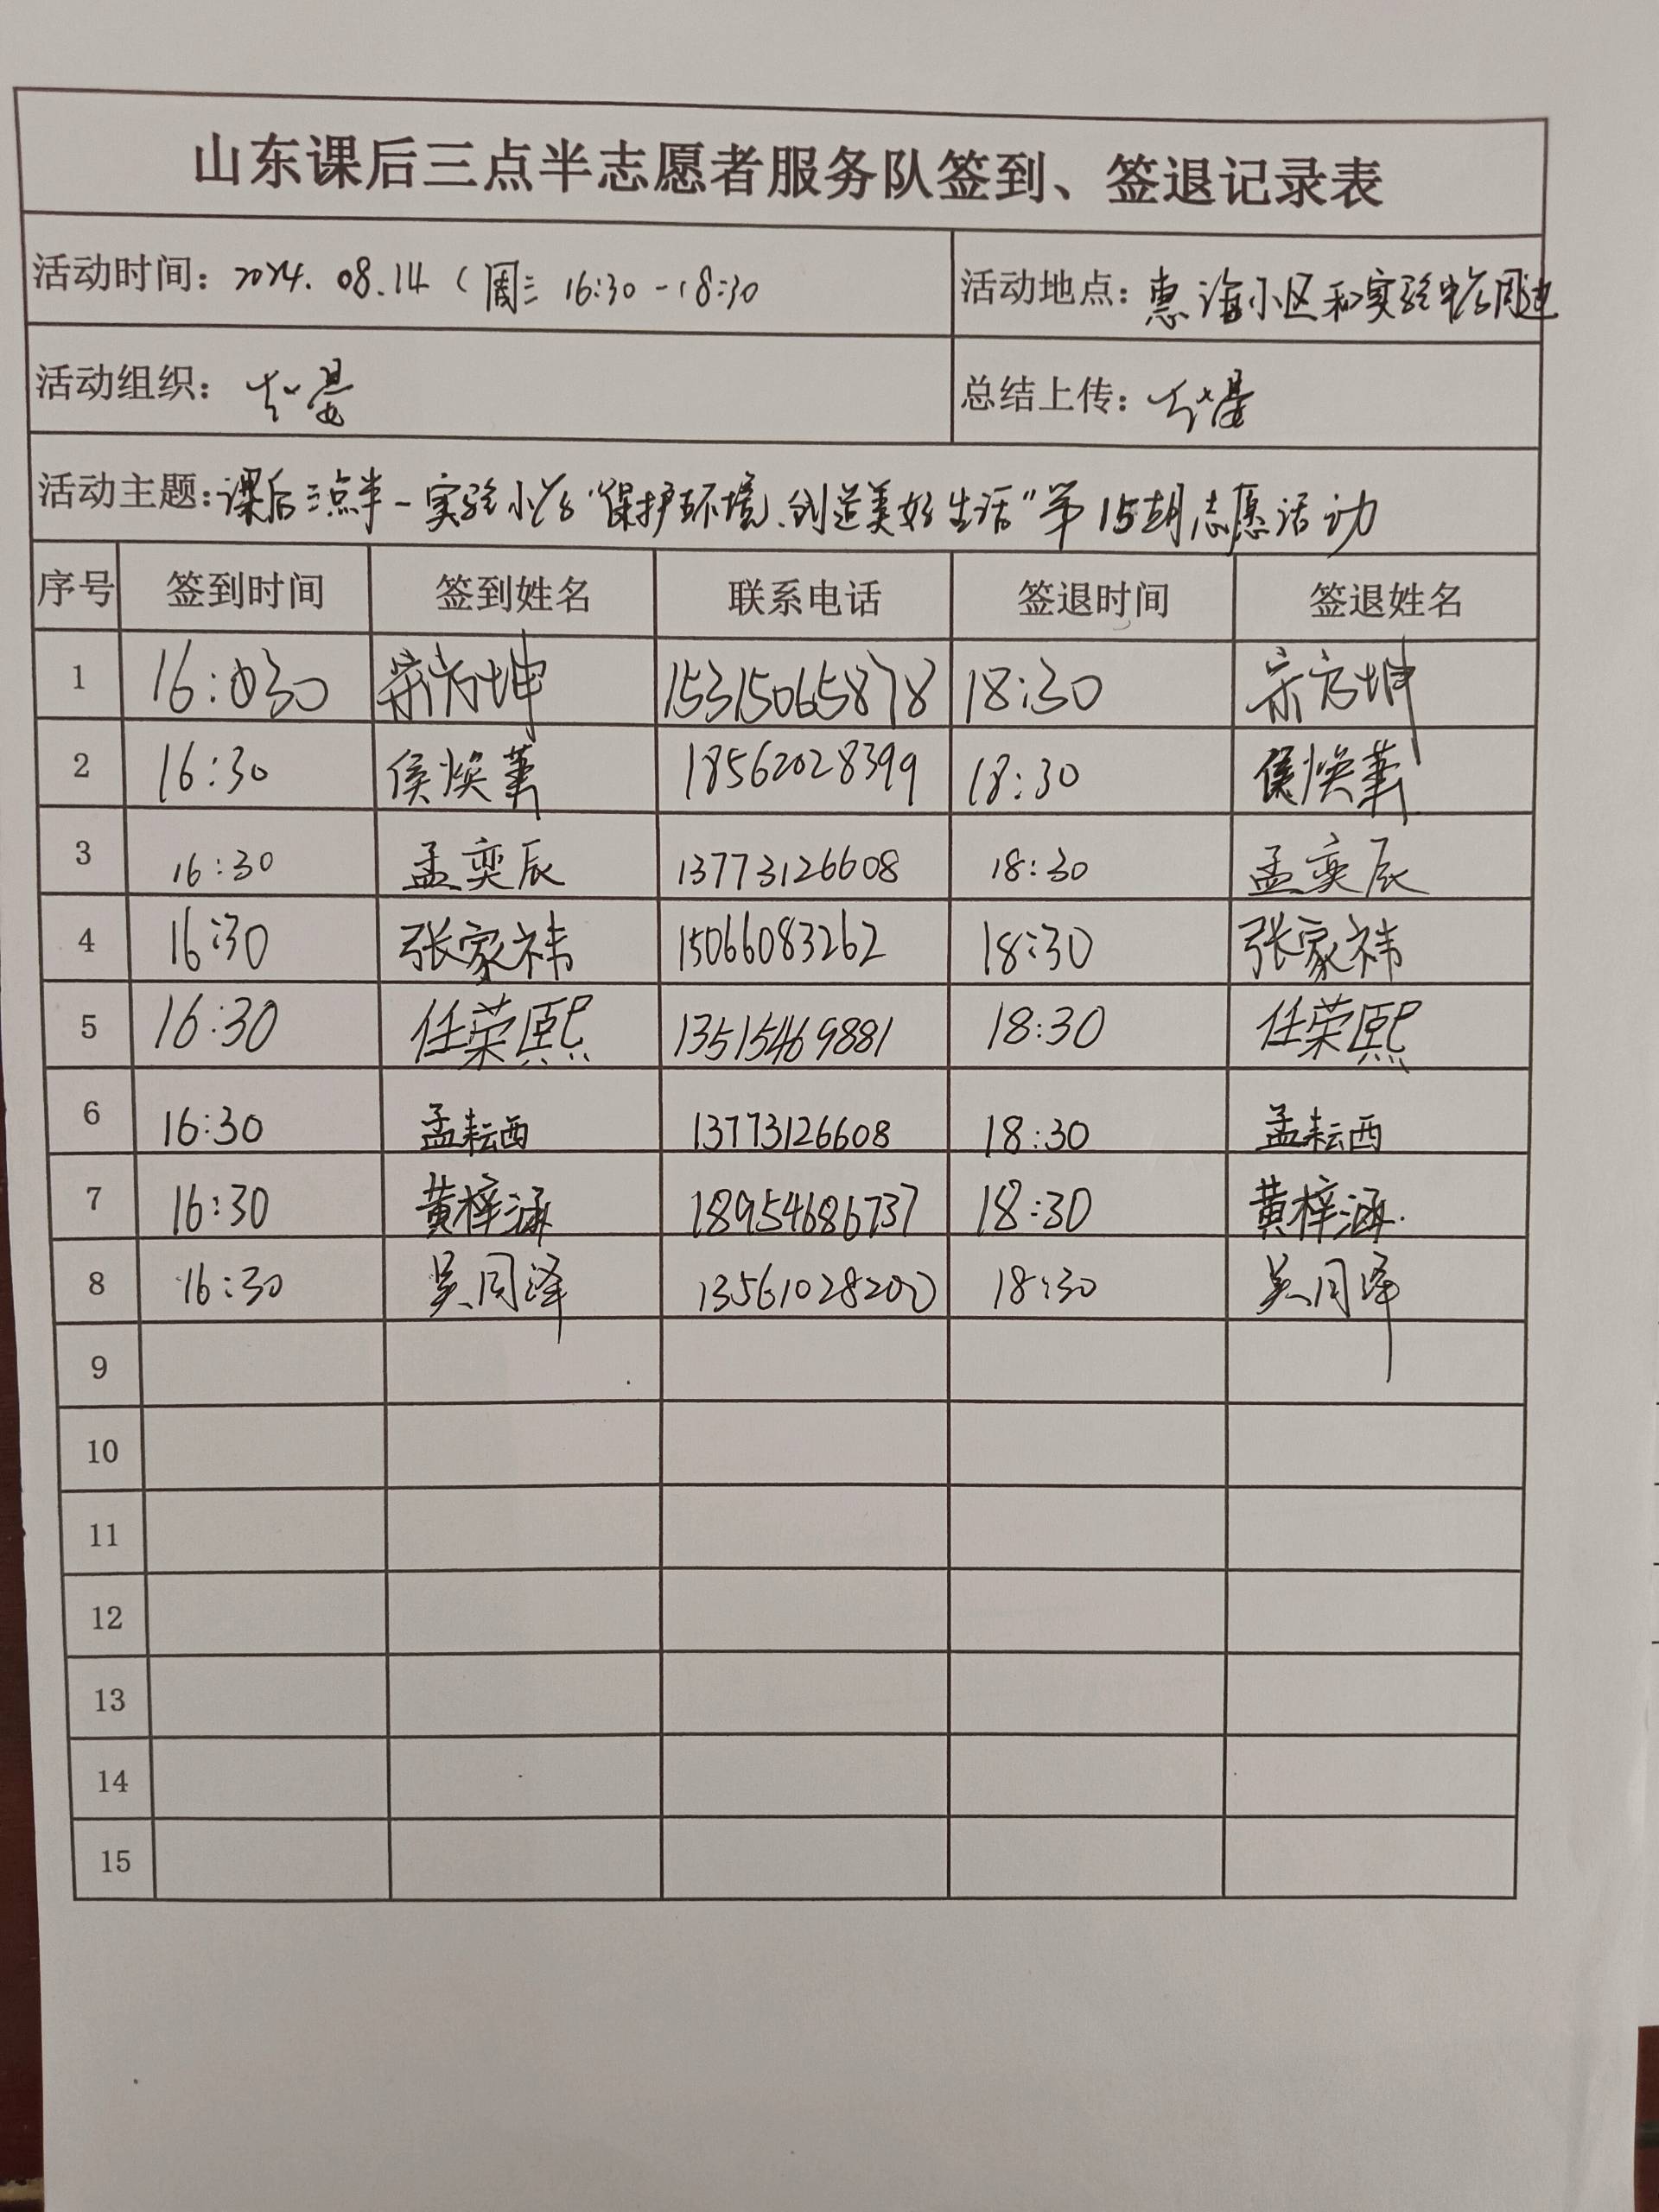 山东课后三点半志愿者服务队签到、签退记录表
活动时间：2024.08.14（周三 16:30-18:30 活动地点：惠海小区和实验中学周边
活动组织： 总结上传：
活动主题：课后三点半-实验小学“保护环境、创造美好生活”第15期志愿活动
序号 签到时间 签到姓名 联系电话 签退时间 签退姓名
1 16:030 宗方坤 15315065878 18:30 宗方坤
2 16:30 侯焕菁 18562028399 18:30 侯焕菁
3 16:30 孟奕辰 13773126608 18:30 孟奕辰
4 16:30 张家祎 15066083262 18:30 张家祎
5 16:30 任荣熙 13515469881 18:30 任荣熙
6 16:30 孟耘西 13773126608 18:30 孟耘西
7 16:30 黄梓涵 18954686737 18:30 黄梓涵
8 16:30 吴同泽 13561028200 18:30 吴同泽
9
10
11
12
13
14
15